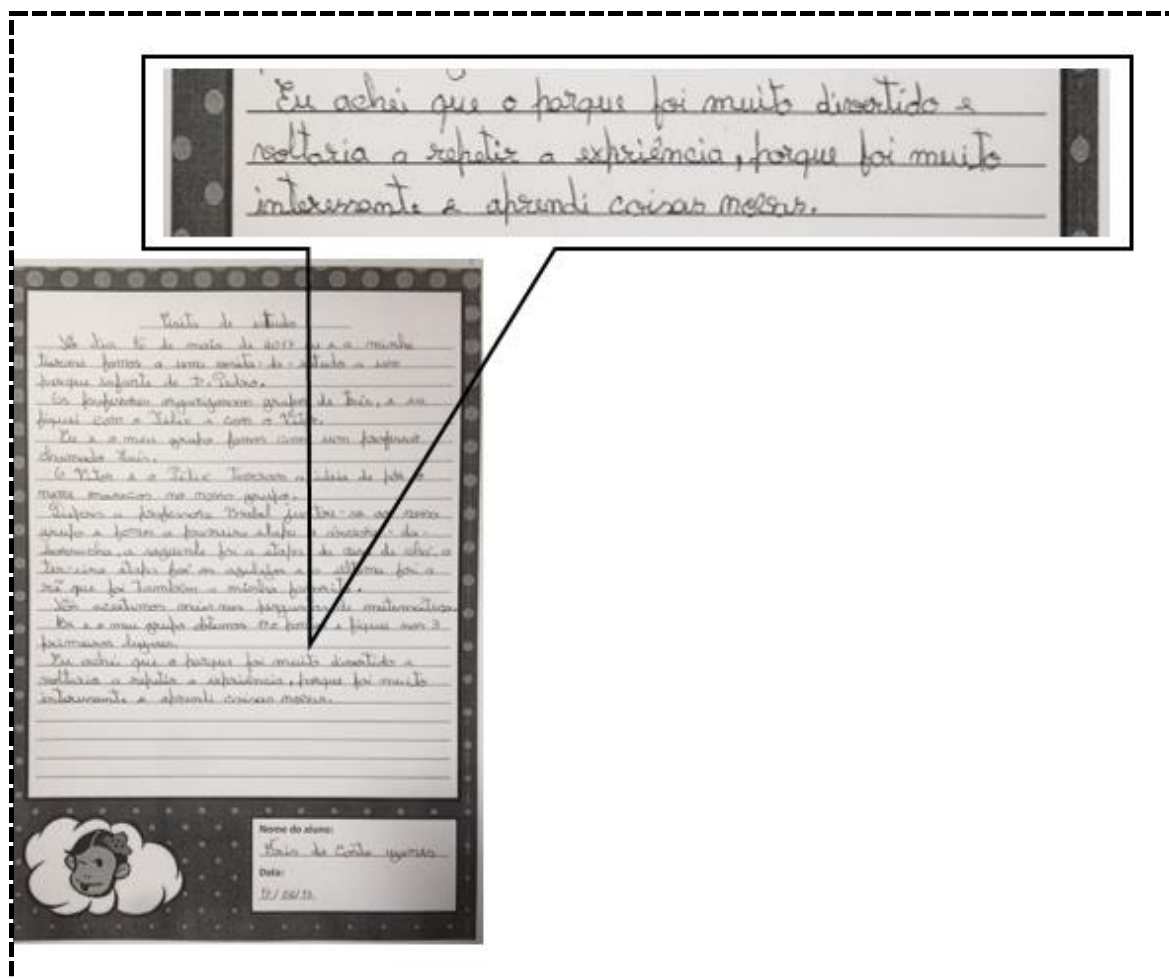 Eu achei que o parque foi muito divertido e
voltaria a repetir a expriência, porque foi muito
interessante e aprendi coisas novas.
Visita de estudo
dia de maio de 2017 eu e a minha
turma fomos a uma visita-de-estudo a um
parque infante de D. Pedro.
Os professores organizaram grupos de três, e eu
fiquei com o Félix e com o Vitor.
Eu e o meu grupo fomos com um professor
chamado
O Vitor e o Félix tiveram a ideia de pôr o
nome no nosso grupo.
Depois a professora Isabel juntou-se ao nosso
grupo e fomos a primeira etapa a da-
borracha, a seguinte foi a etapa da casa de chá, a
terceira etapa foi os azulejos e a última foi a
rã que foi também a minha favorita.
Nós acertamos mais nas perguntas de matemática.
Eu e o meu grupo obtemos e fiquei nos 3
primeiros lugares.
Eu achei que o parque foi muito divertido e
voltaria a repetir a expriência, porque foi muito
interessante e aprendi coisas novas.
Nome do aluno:
da Costa
Data: